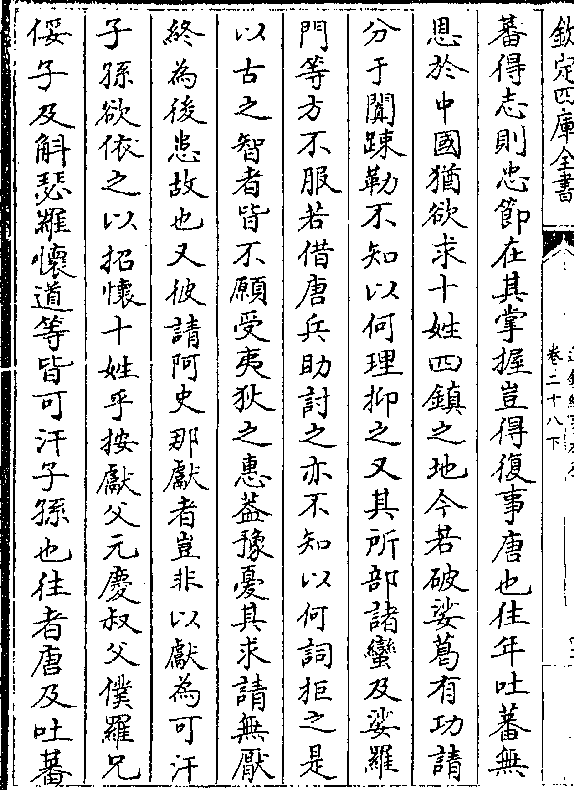 欽定四庫全書
卷二十八下
蕃得志則忠節在其掌握豈得復事唐也往年吐蕃無
恩於中國猶欲求十姓四鎮之地今若破娑葛有功請
分于闐踈勒不知以何理抑之又其所部諸蠻及娑羅
門等方不服若借唐兵助討之亦不知以何詞拒之是
以古之智者皆不願受夷狄之惠葢豫憂其求請無厭
終為後患故也又彼請阿史那獻者豈非以獻為可汗
子孫欲依之以招懷十姓乎按獻父元慶叔父僕羅兄
俀子及斛瑟羅懷道等皆可汗子孫也往者唐及吐蕃